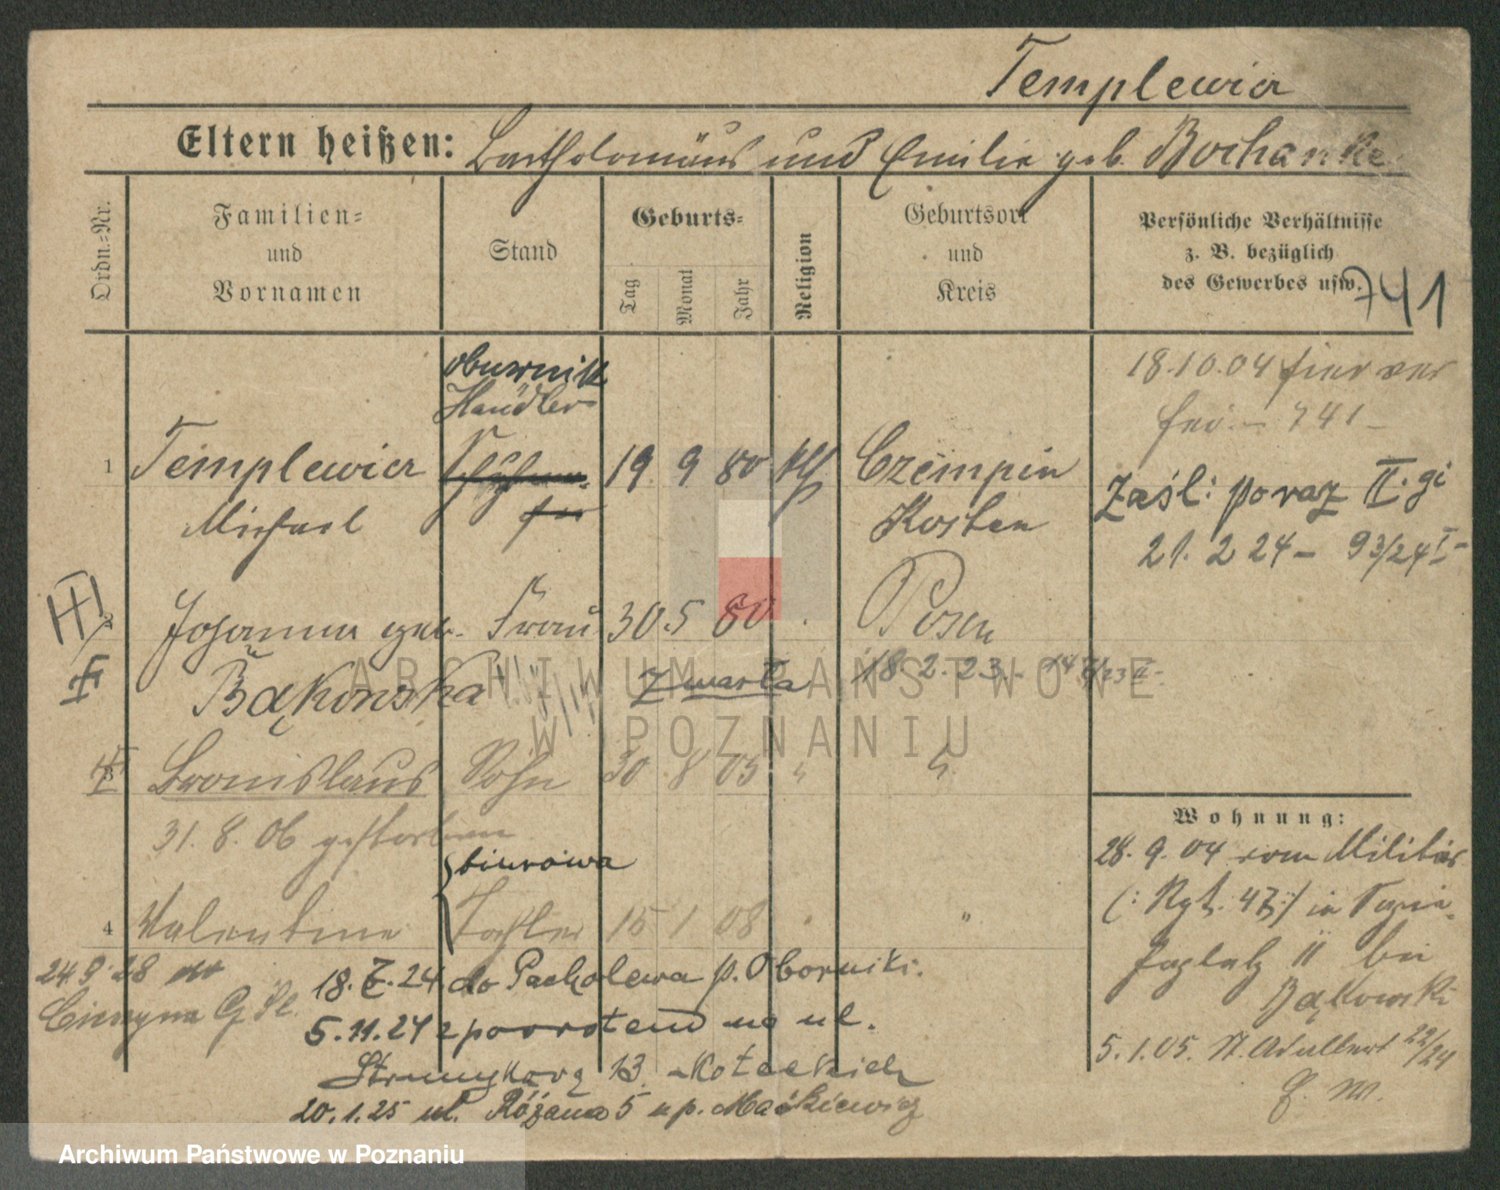 Templewicz
Eltern heißen: Bartholomäus und Emilie geb. Bochanke
Ordn.=Nr.
Familien=
und
Vornamen
Stand
Geburts=
Tag
Monat
Jahr
Religion
Geburtsort
und
Kreis
Persönliche Verhältnisse
z. B. bezüglich
des Gewerbes usw.
741
18.10.04 hier
741
Händler
1 Templewicz 19. 9 80 kth Czempin
Michael
Kosten
Zaśl: poraz II. gi
21. 2 24 - 93/24 I -
2 Johanna geb. Frau 30. 5 80 Posen
Bąkowska
zmarła 18. 2. 23.
3 Bronislaus Sohn 30 8 05 "
31. 8. 06 gestorben
biurowa
4 Valentine Tochter 15 1 08 "
Wohnung:
28. 9. 04 vom Militär
(: Rgt. 47 :) in
11 bei
Bąkowski
5. 1. 05. St. Adalbert 22/24
24. 9. 28 do
18. 7. 24 do Pacholewa p. Oborniki.
5. 11. 24 z powrotem na ul.
Strumykową 13.
20. 1. 25 ul. Różana 5 u p. Maćkiewicz
ARCHIWUM PAŃSTWOWE
W POZNANIU
Archiwum Państwowe w Poznaniu